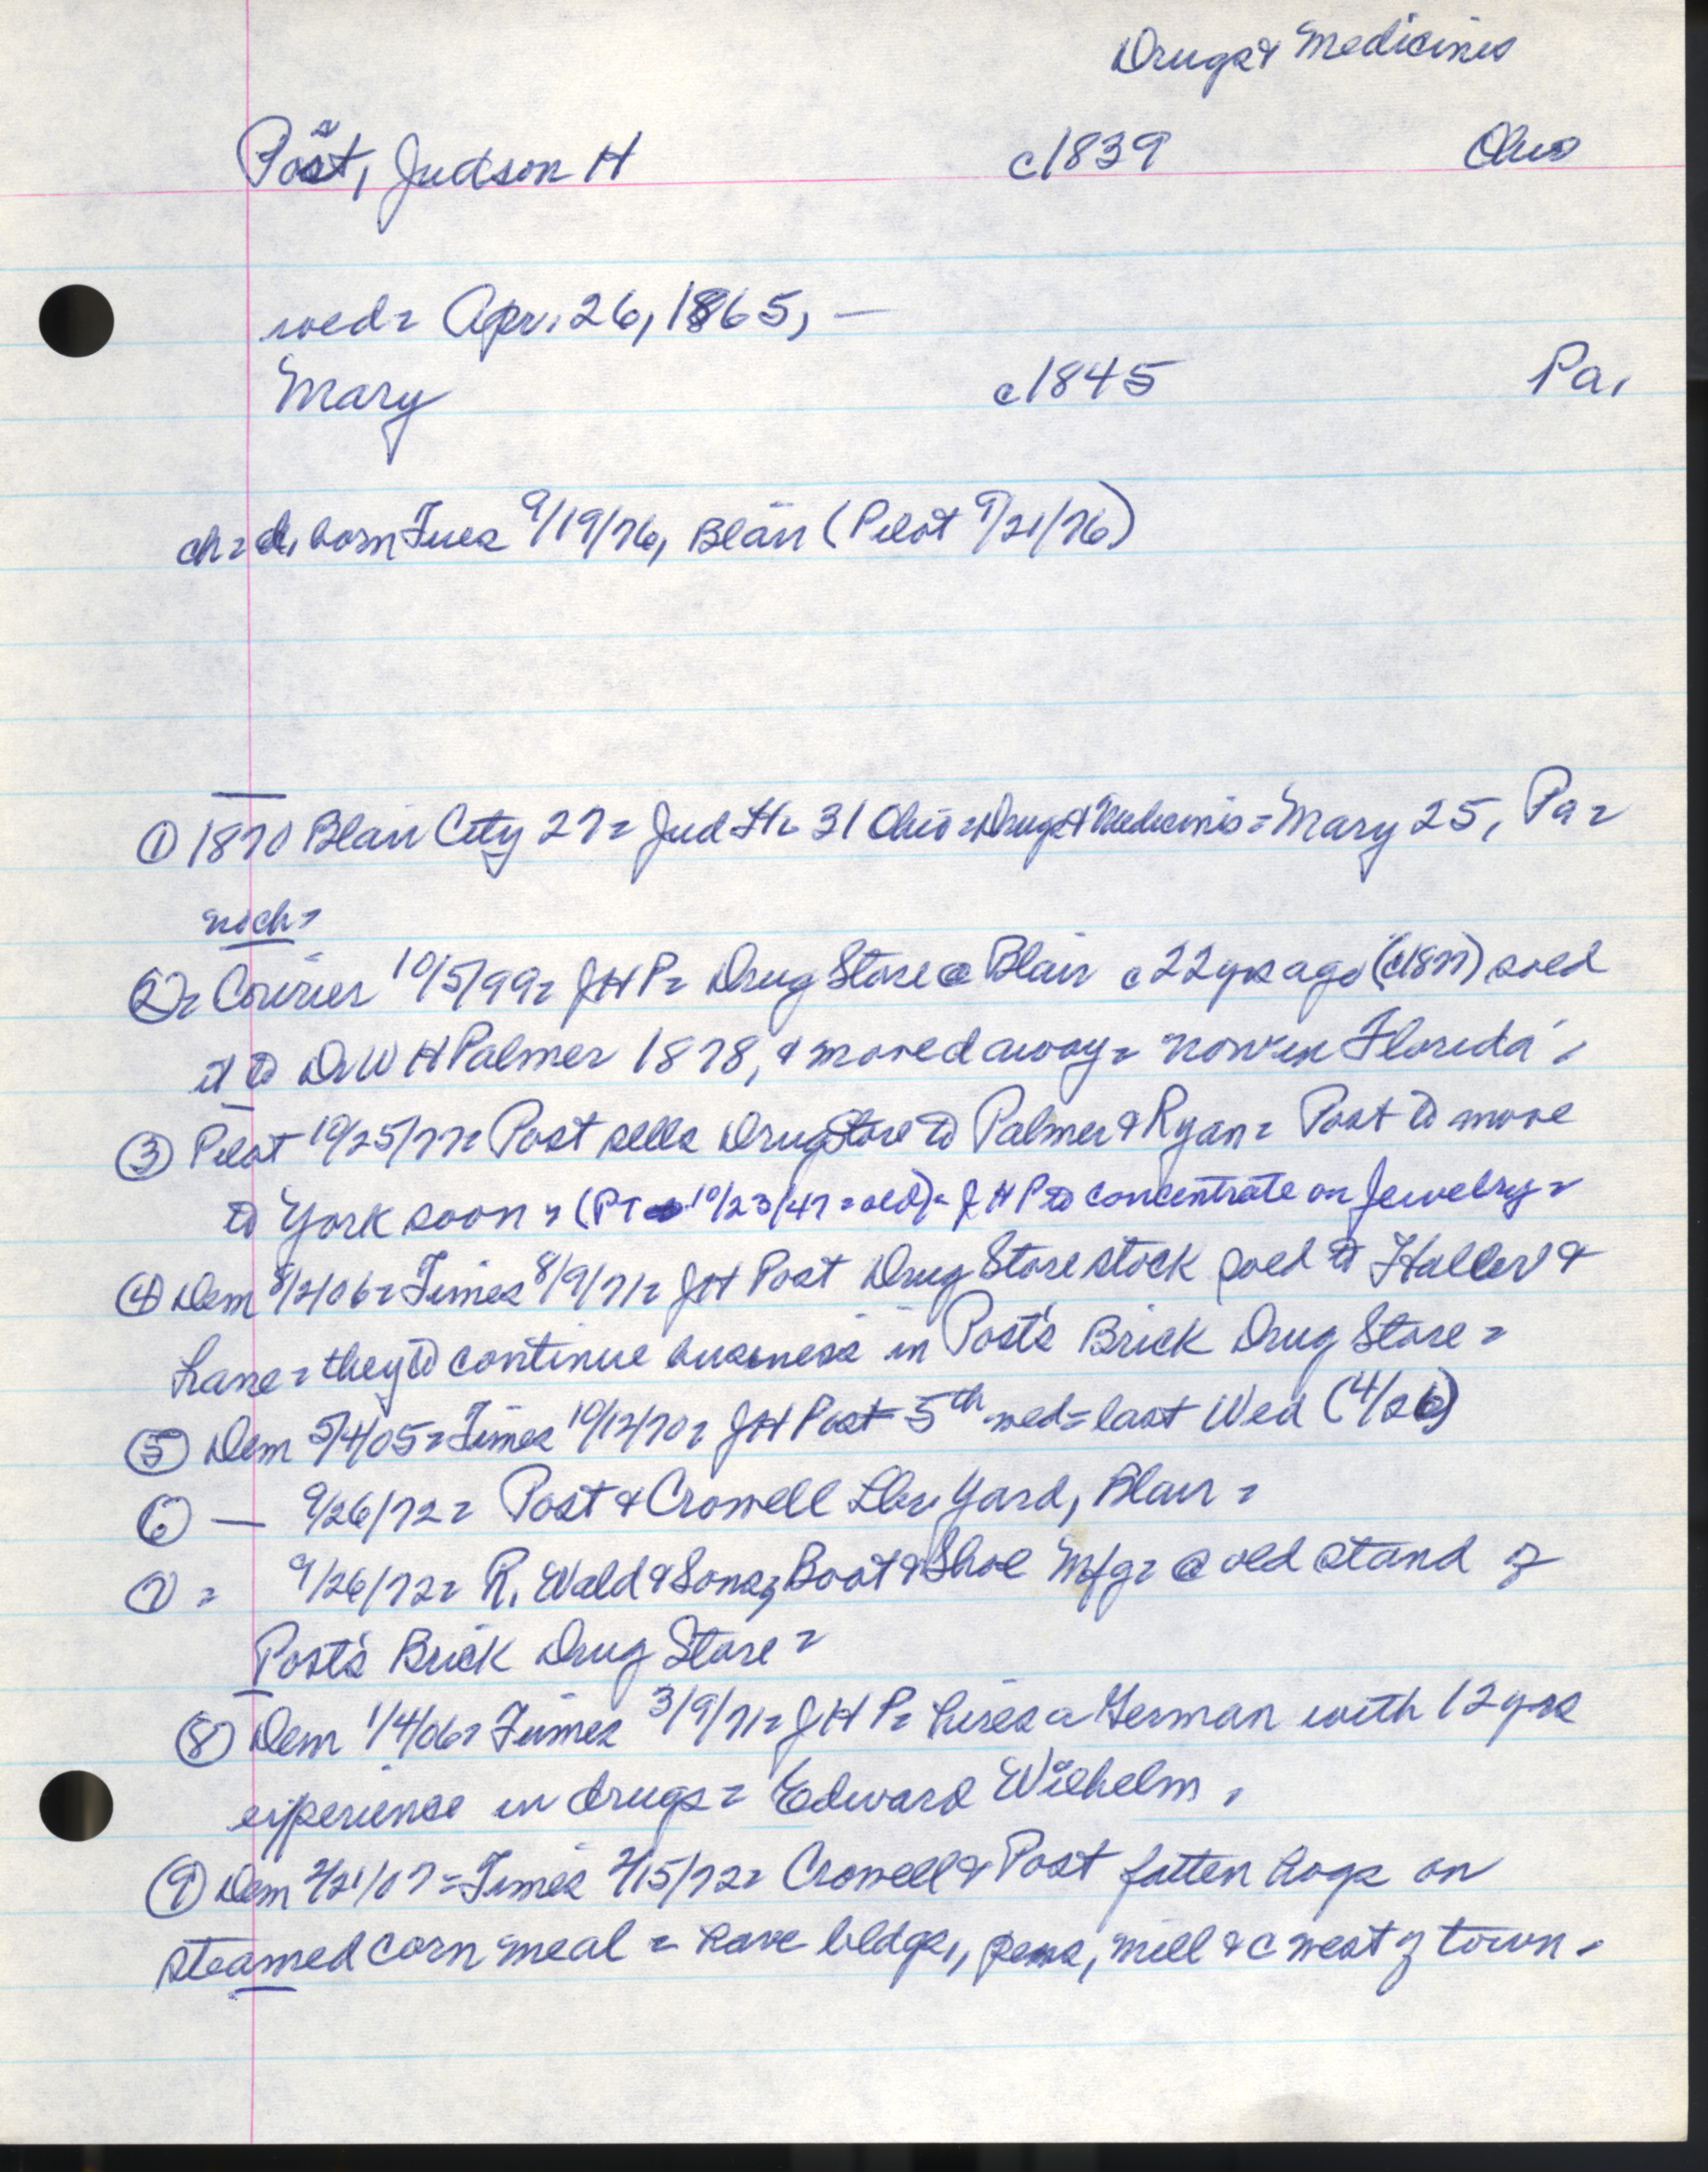 Drugs & Medicines
Post, Judson H c1839 Ohio
wed = Apr. 26, 1865, —
Mary c1845 Pa.
ch = d. born Tues 9/19/76, Blair (Pilot 9/21/76)
① 1870 Blair City 27 = Jud H = 31 Ohio = Drugs & Medicines = Mary 25, Pa =
no ch =
② = Courier 10/5/99 = JHP = Drug Store @ Blair c22 yrs ago (c1877) sold
it to Dr W H Palmer 1878, & moved away = now in Florida.
③ Pilot 10/25/77 = Post sells Drug Store to Palmer & Ryan = Post to move
to York soon = (PT 10/23/47 = old) = J H P to concentrate on Jewelry =
④ Dem 8/2/06 = Times 8/9/71 = JH Post Drug Store stock sold to Haller &
Lane = they to continue business in Post's Brick Drug Store =
⑤ Dem 5/4/05 = Times 10/12/70 = JH Post 5th wed = last Wed (4/26)
⑥ — 9/26/72 = Post & Crowell Lbr. Yard, Blair =
⑦ = 9/26/72 = R. Wald & Sons, Boot & Shoe Mfg = @ old stand of
Post's Brick Drug Store =
⑧ Dem 1/4/06 = Times 3/9/71 = J H P = hires a German with 12 yrs
experience in drugs = Edward Wilhelm.
⑨ Dem 2/21/07 = Times 2/15/72 = Crowell & Post fatten hogs on
steamed corn meal = have bldgs., pens, mill &c west of town.